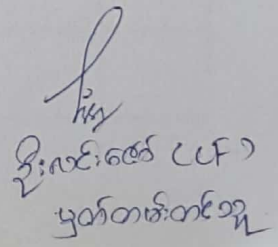 ဦးလင်းဇော် (CCF)
မှတ်တမ်းတင်သူ